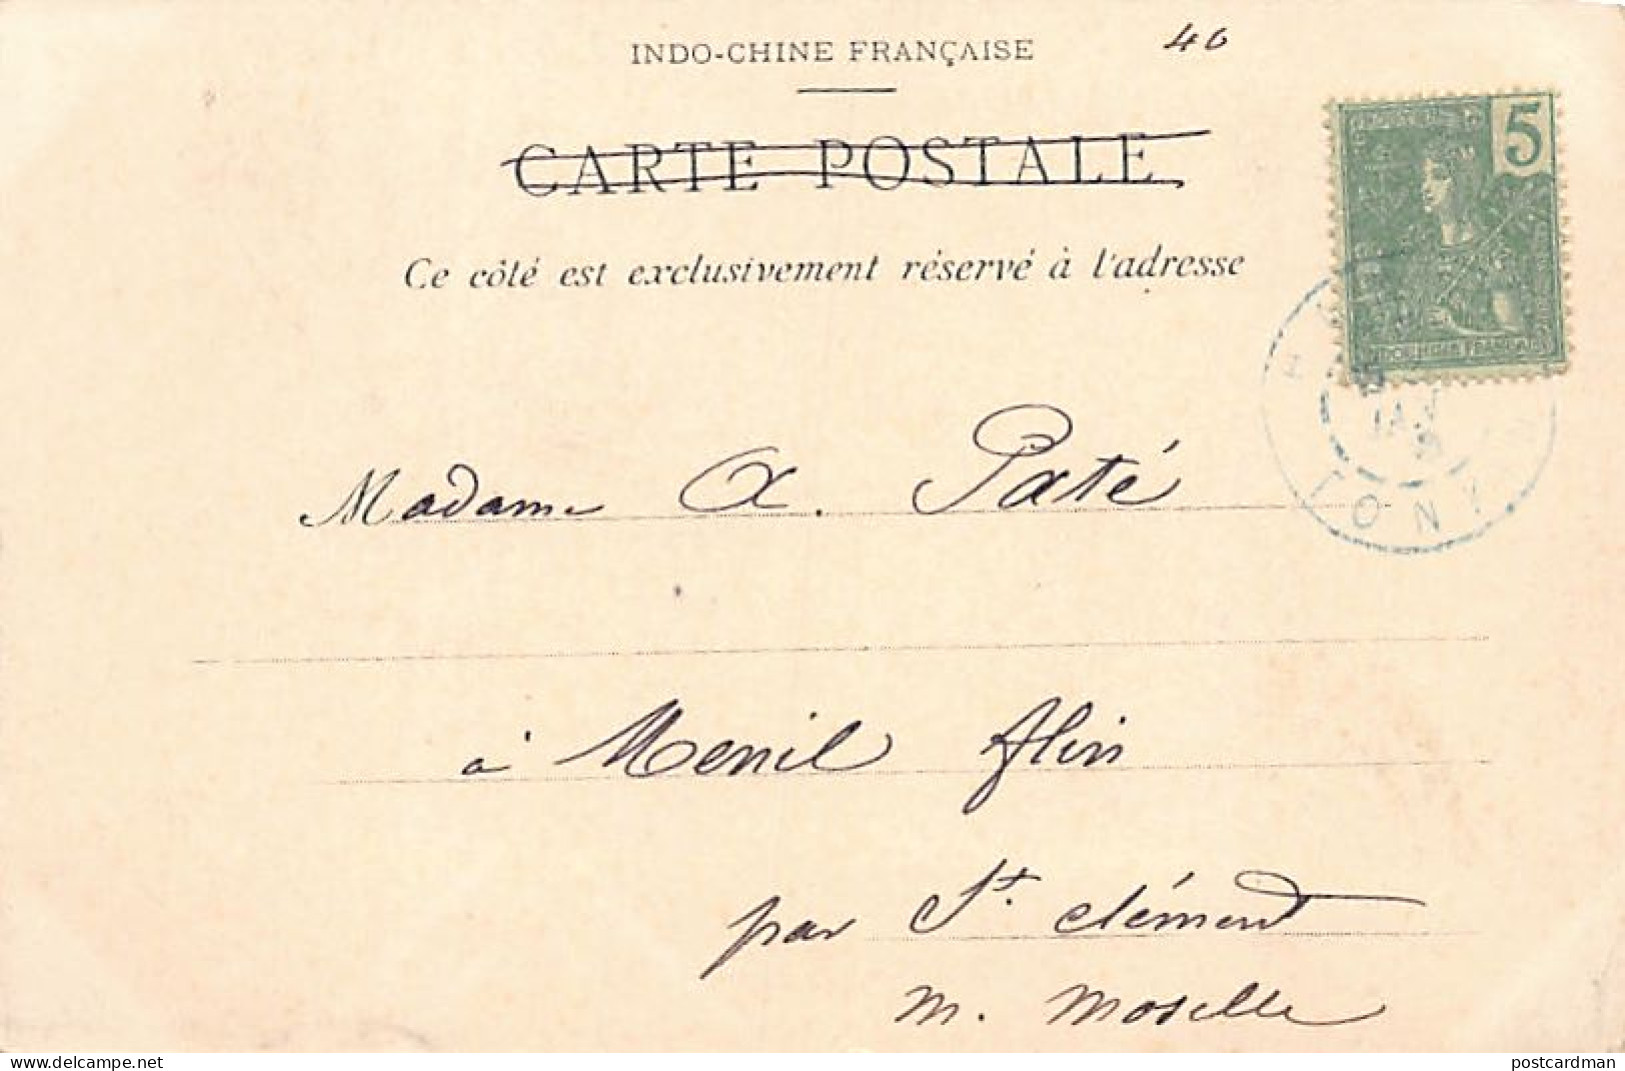 INDO-CHINE FRANÇAISE
40
CARTE POSTALE
5
INDO-CHINE FRANÇAISE
Ce côté est exclusivement réservé à l'adresse
JANV
TONK
Madame A. Paté
à Menil flin
par St. Clément
M. Moselle
www.delcampe.net
postcardman